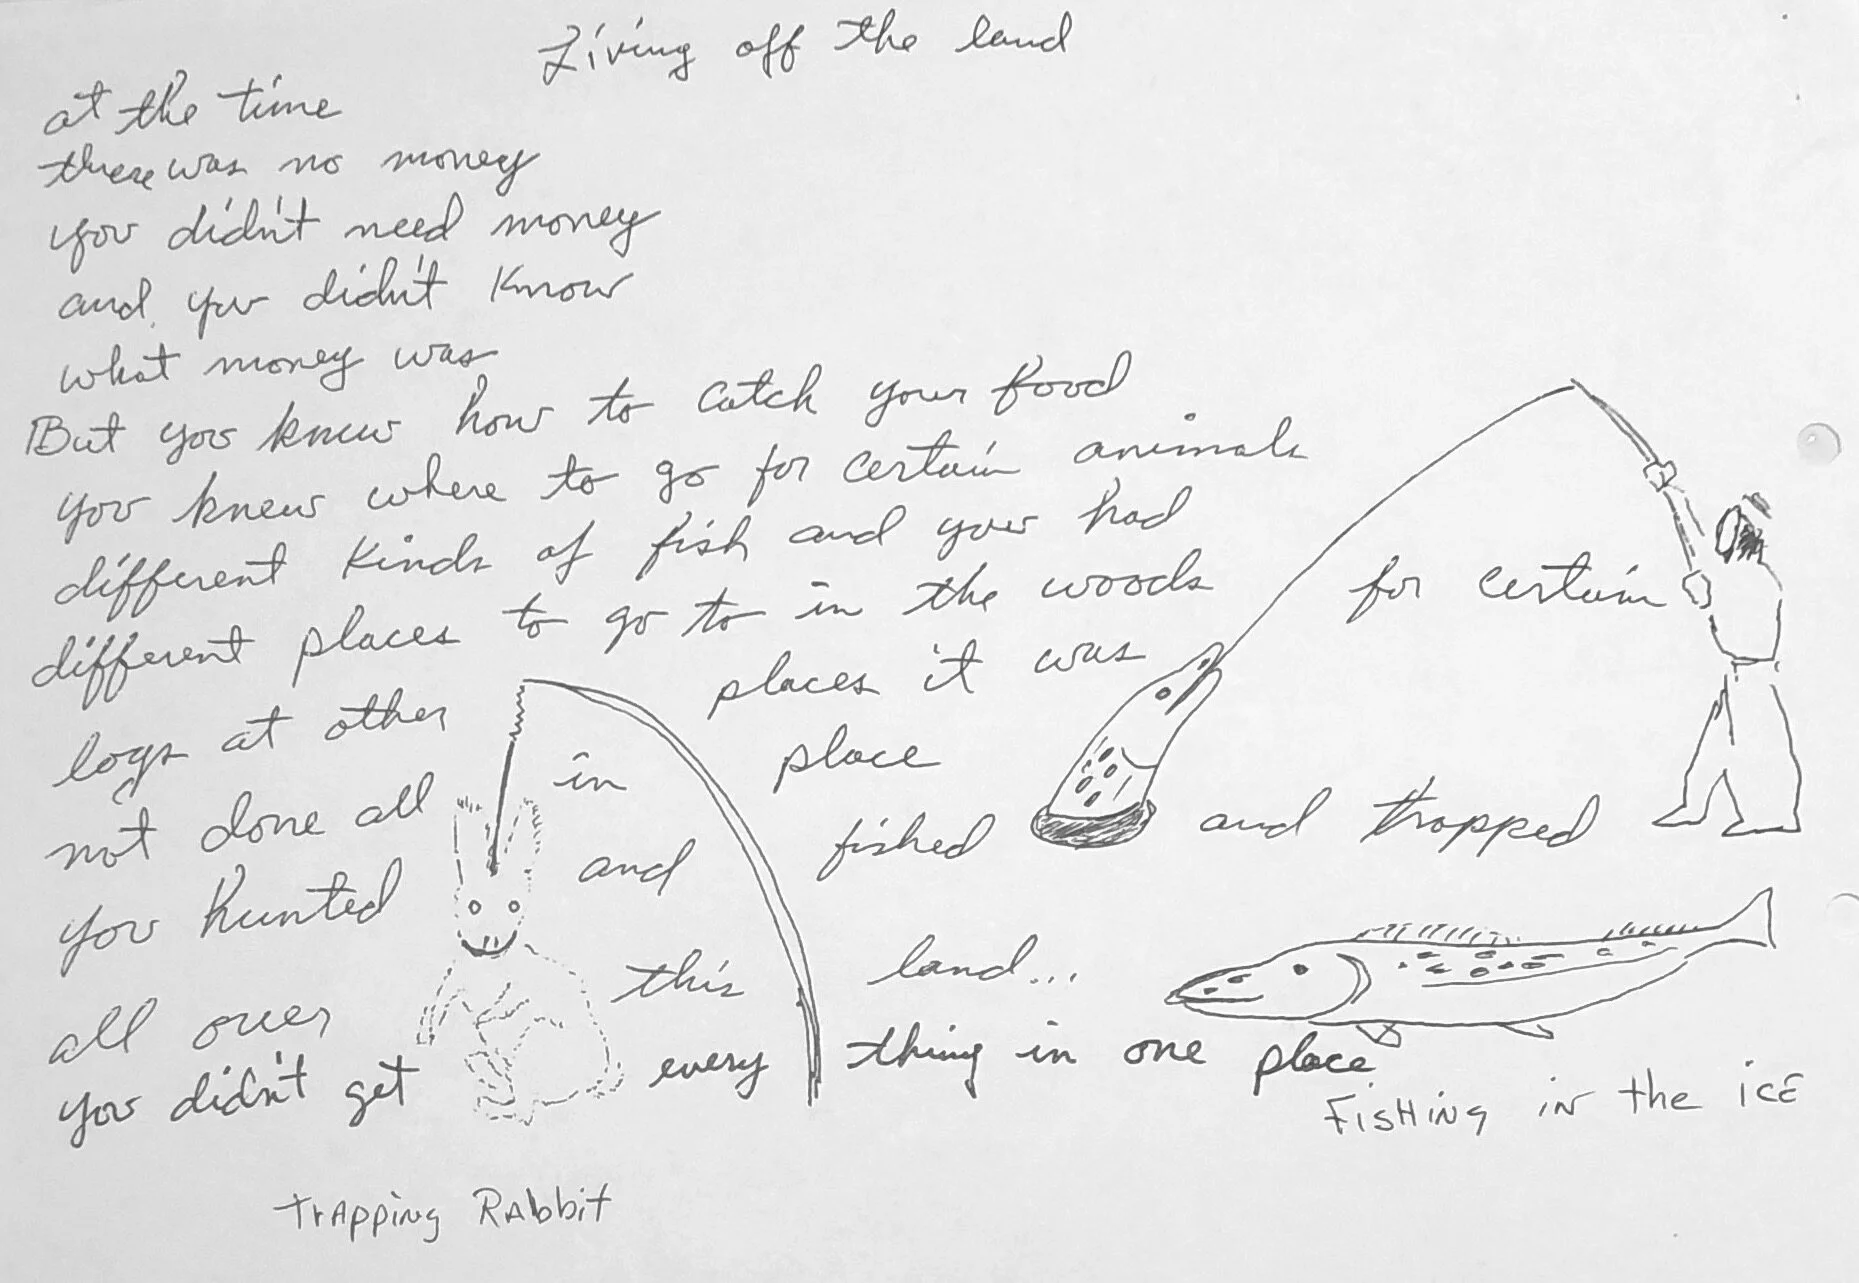 Living off the land
at the time
there was no money
you didn't need money
and you didn't know
what money was
But you knew how to catch your food
you knew where to go for certain animals
different kinds of fish and you had
different places to go to in the woods for certain
logs at other places it was
not done all in place
you hunted and fished and trapped
all over this land...
you didn't get every thing in one place
FisHing in the icE
trApping RAbbit